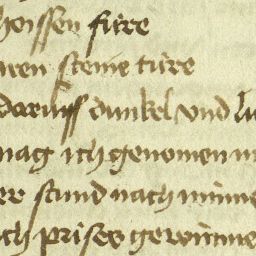 hoissen füre
uren steine türe
daruff dunkel vnd li
mag ich genomen m
er stund nach mine
ich prises gewinne